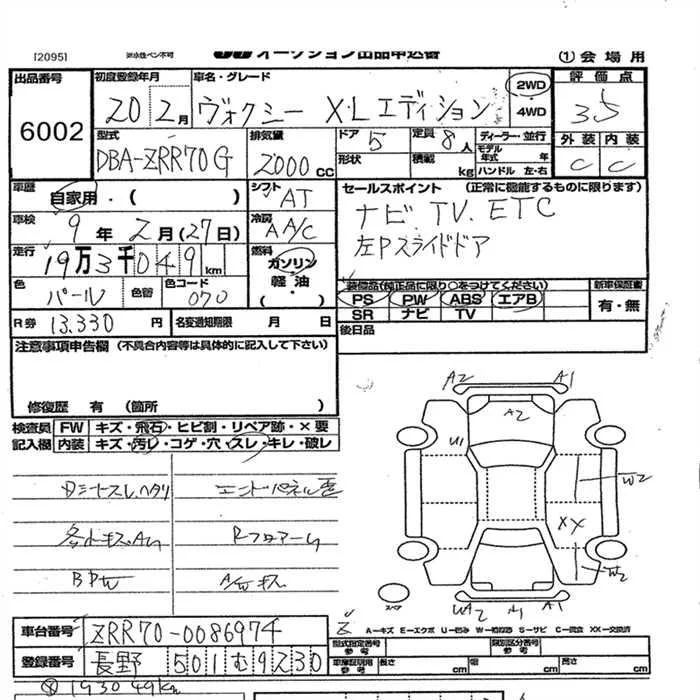 [2095]
オークション出品申込書
① 会場用
出品番号 6002
初度登録年月 20 2月
車名・グレード ヴォクシー X・Lエディション
2WD・4WD
評価点 3.5
型式 DBA-ZRR70G
排気量 2000 CC
ドア 5
形状
定員 8人
積載 kg
ディーラー・並行
モデル年式 年
ハンドル 左・右
外装 C
内装 C
車歴 自家用・( )
シフト AT
車検 9年 2月(27日)
冷房 AA/C
走行 19万3千049km
燃料 ガソリン・軽油・( )
色 パール
色替
色コード 070
R券 13,330円
名変期限 月 日
セールスポイント (正常に機能するものに限ります)
ナビ. TV. ETC
左Pスライドドア
装備品(純正品に限り○をつけてください)
新車保証書 有・無
PS PW ABS エアB
SR ナビ TV
後日品
注意事項申告欄 (不具合内容等は具体的に記入して下さい)
修復歴 有 (箇所 )
検査員記入欄
FW キズ・飛石・ヒビ割・リペア跡・×要
内装 キズ・汚レ・コゲ・穴・スレ・キレ・破レ
Dシートスレ、ヘタリ
BPW
A/Wキズ
A2 A1
A2
U1
W2
XX
W2
A1
スペア
A=キズ E=エクボ U=凹み S=サビ C=腐食 XX=交換済
車台番号 ZRR70-0086974
登録番号 長野 501 む 9230
型式指定番号 参考
類別区分番号 参考
長さ cm 幅 cm 高さ cm
193049km